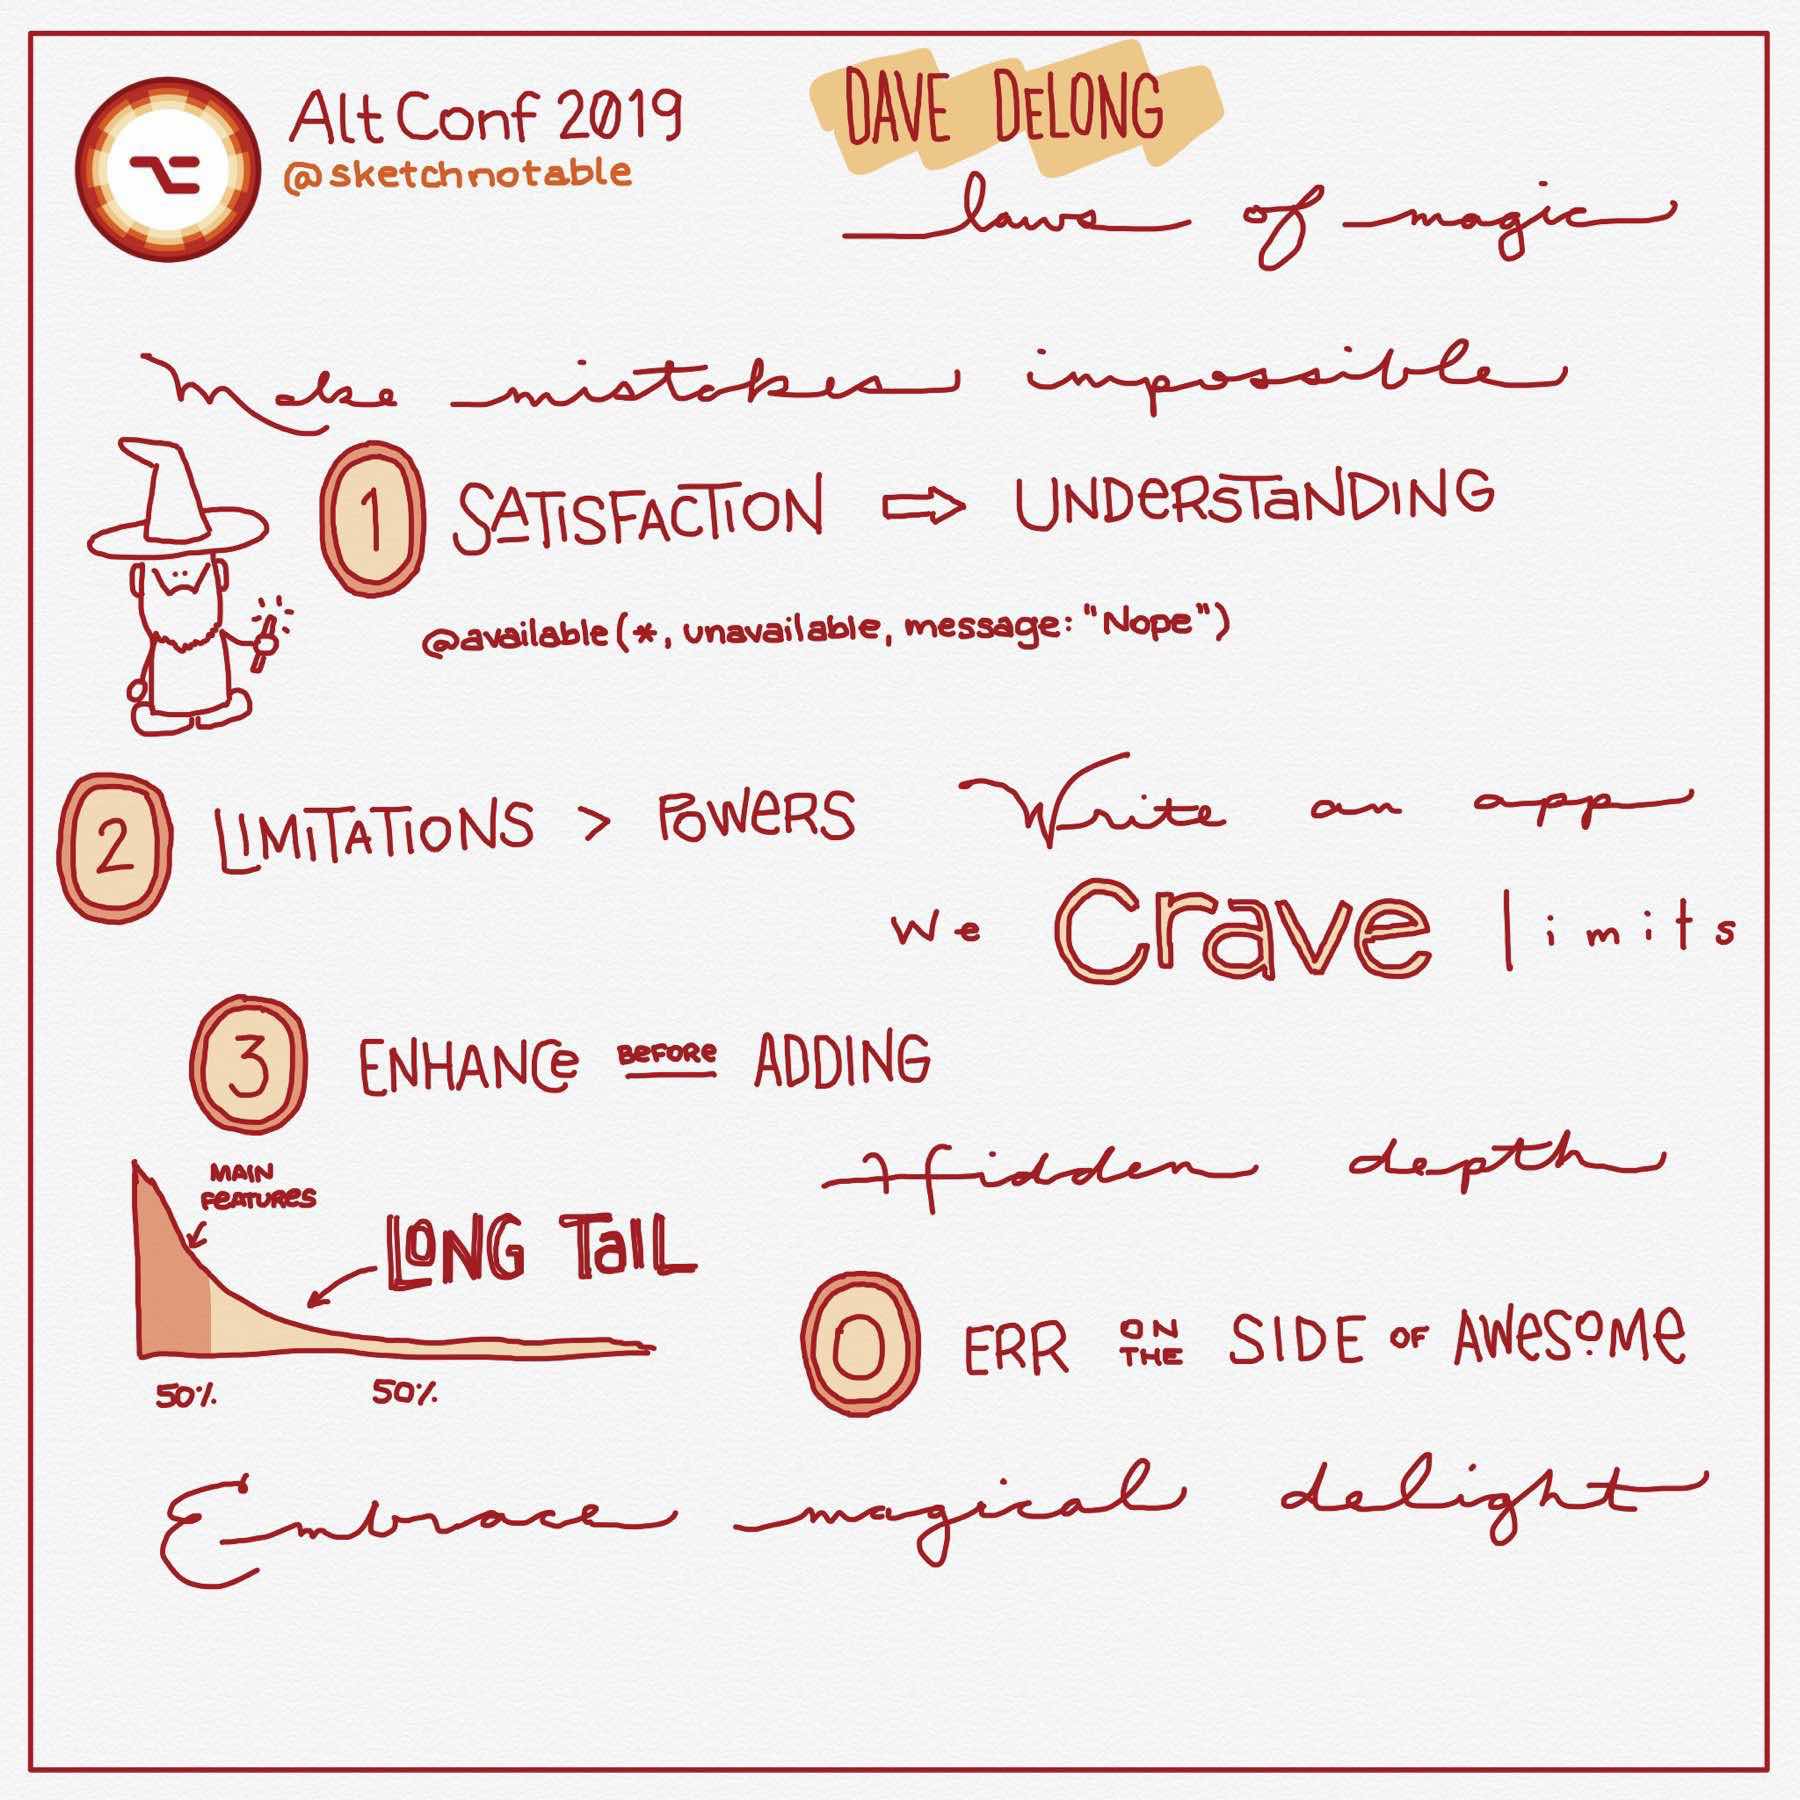 Alt Conf 2019
@sketchnotable
DAVE DELONG
laws of magic
Make mistakes impossible
1 SATISFACTION ⇨ UNDERSTANDING
@available(*, unavailable, message: "Nope")
2 LIMITATIONS > POWERS
Write an app
we crave limits
3 ENHANCE BEFORE ADDING
Hidden depth
MAIN
FEATURES
LONG TAIL
50% 50%
0 ERR ON THE SIDE OF AWESOME
Embrace magical delight